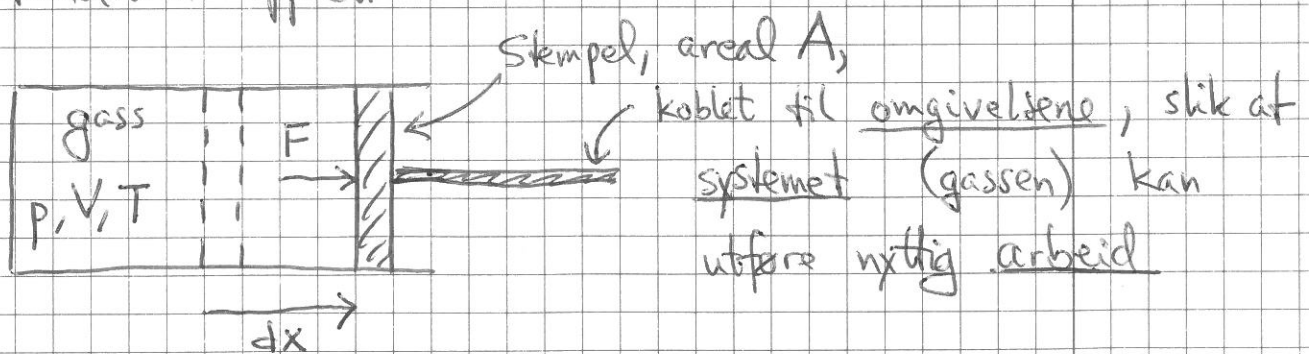 Stempel, areal A,
koblet til omgivelsene, slik at
systemet (gassen) kan
utføre nyttig arbeid
gass
F
p, V, T
dx